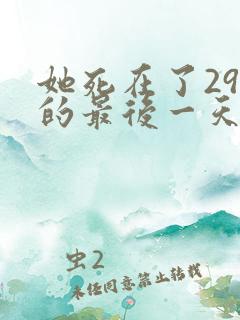 她死在了29
的最後一天
虫2
未经同意禁止转载